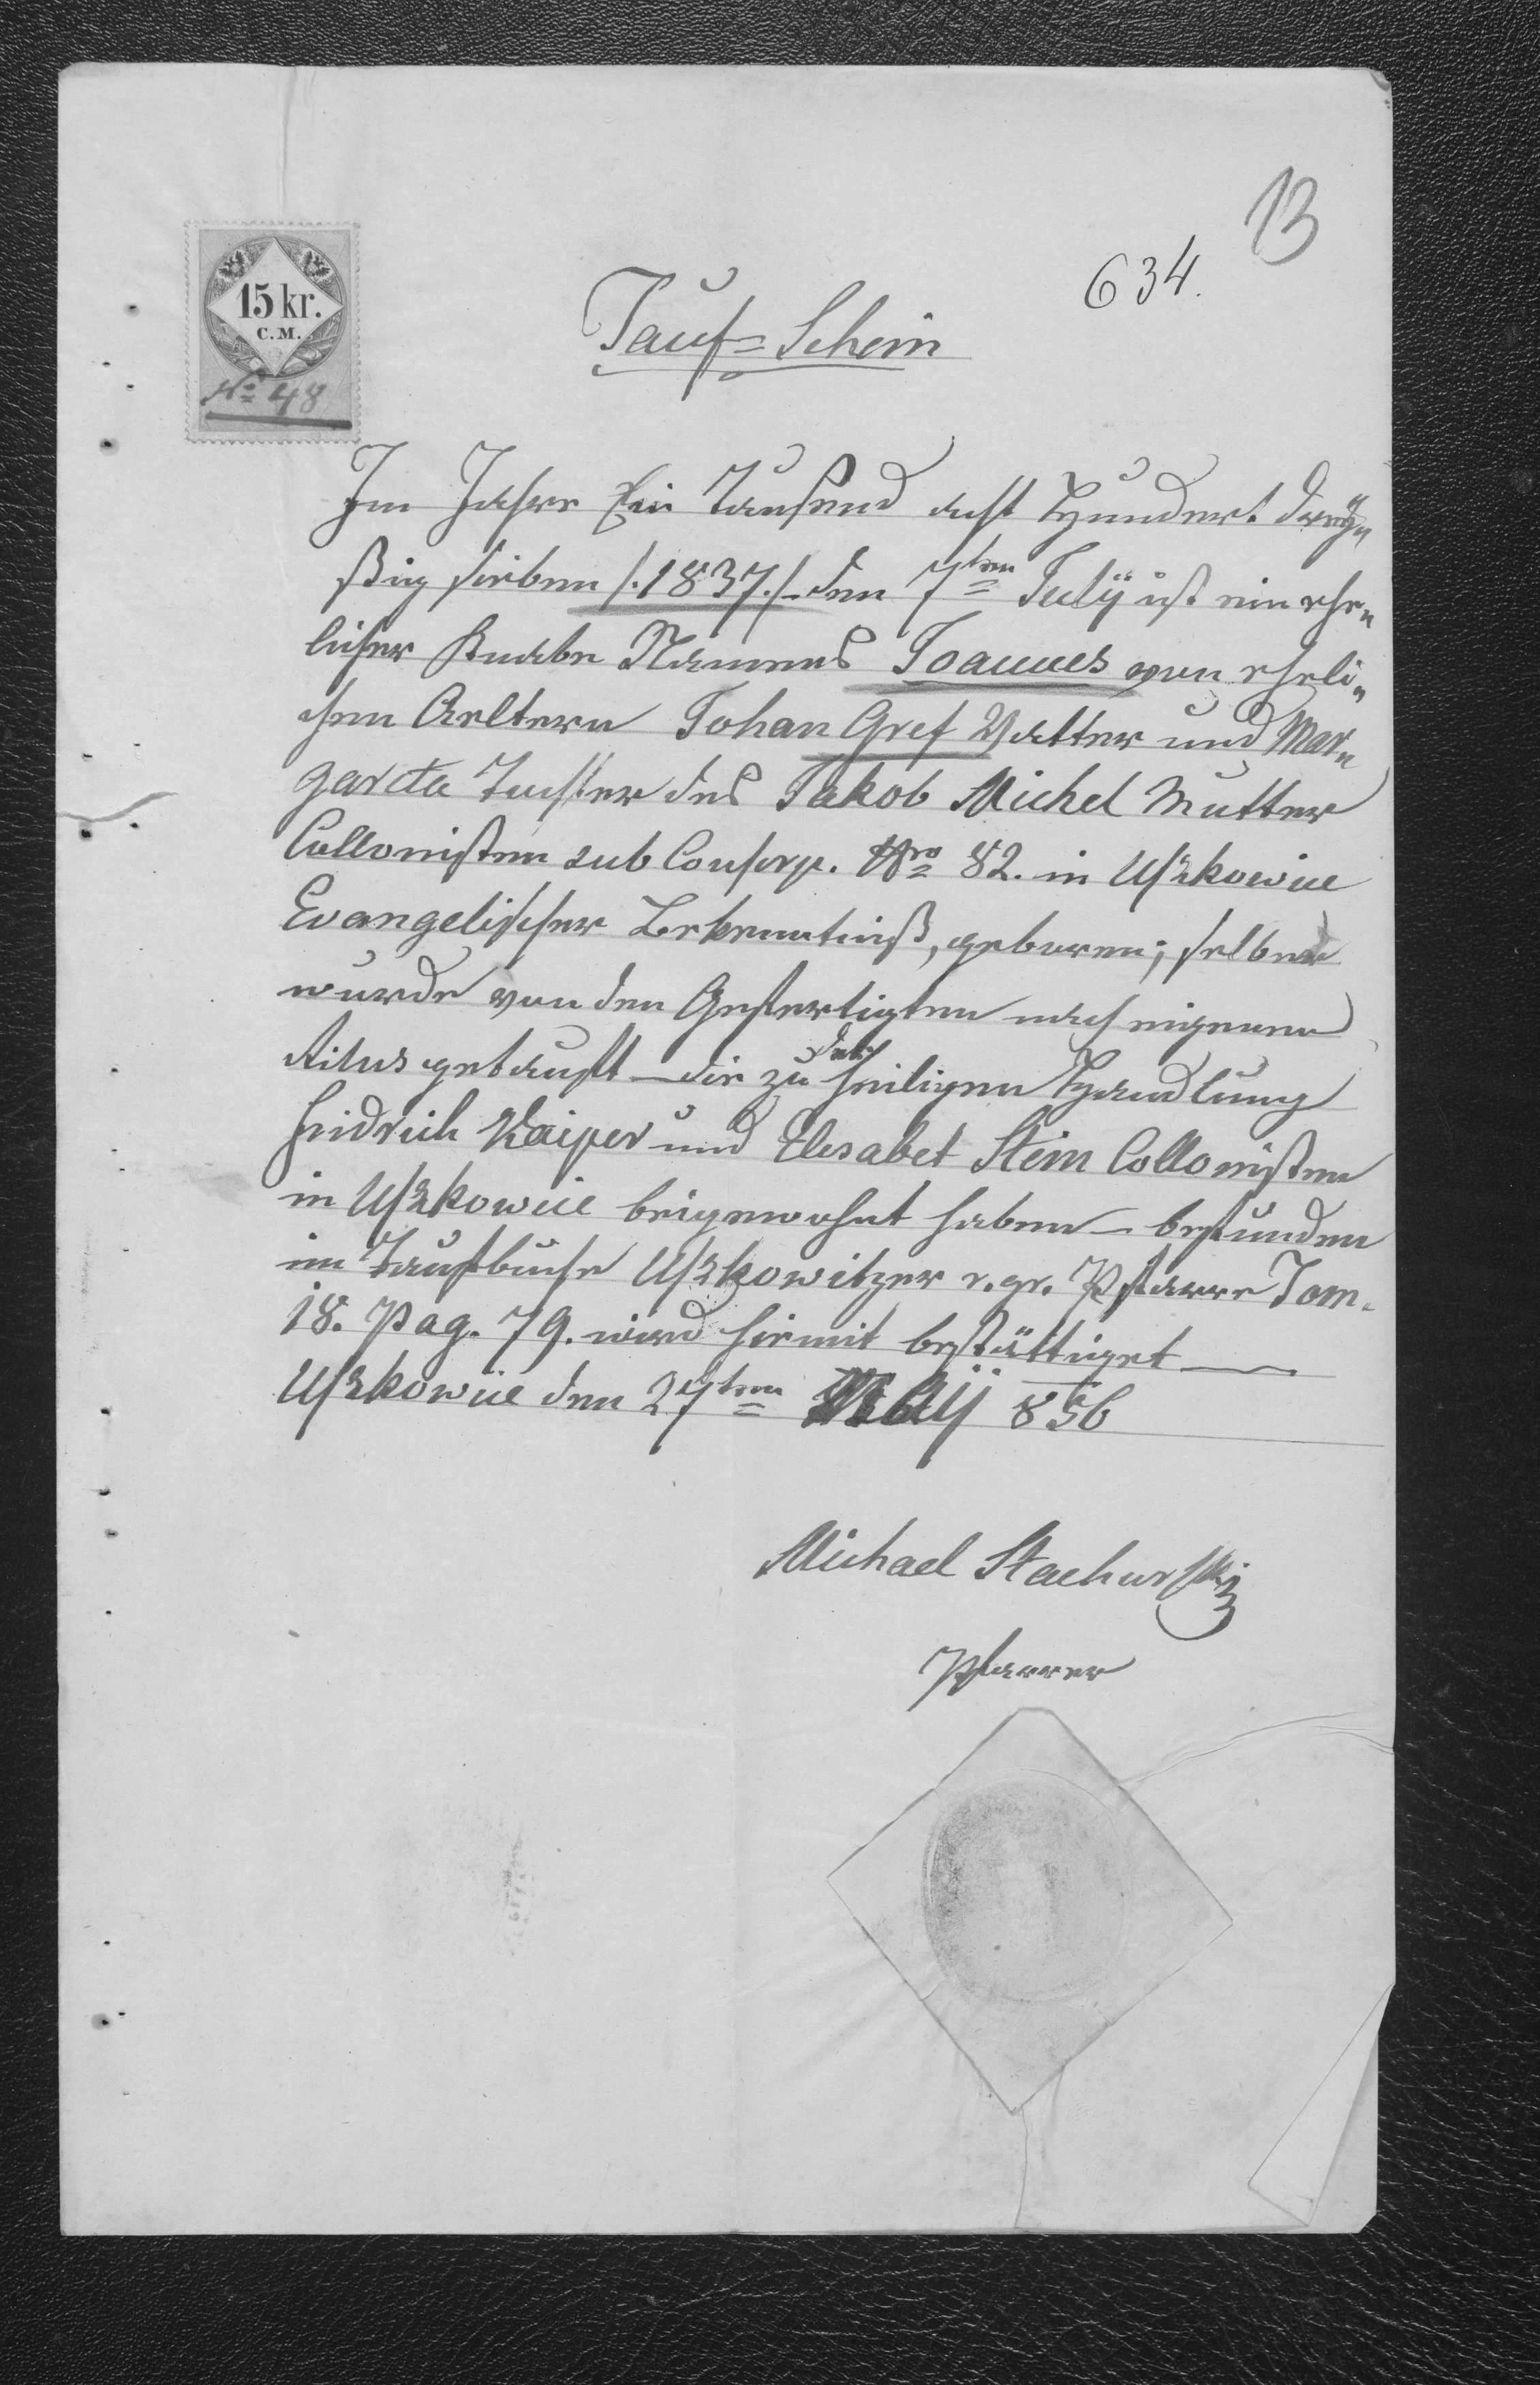 13
634.
15 kr.
C.M.
No 48
Tauf=Schein
Im Jahre Ein Tausend acht Hundert drey=
ßig sieben /: 1837 :/ den 7ten Julÿ ist ein ehe=
licher Knabe Namens Joannes von eheli=
chen Aeltern Johan Gref Vatter und Mar=
gareta Tochter des Jakob Michel Mutter
Collonisten sub Conscrp. Nro 82. in Uszkowice
Evangelischer Bekenntniß, geboren; selber
wurde von den Gefertigten nach eigenen
Ritus getauft – die zu der heiligen Handlung
Fridrich Kaiper und Elesabet Stein Collonisten
in Uszkowice beigewohnt haben – befunden
im Taufbuche Uszkowitzer r. gr. Pfarre Tom.
18. Pag. 79. wird hirmit bestättiget —
Uszkowice den 27ten Maÿ 856
Michael Stachurski
Pfarrer